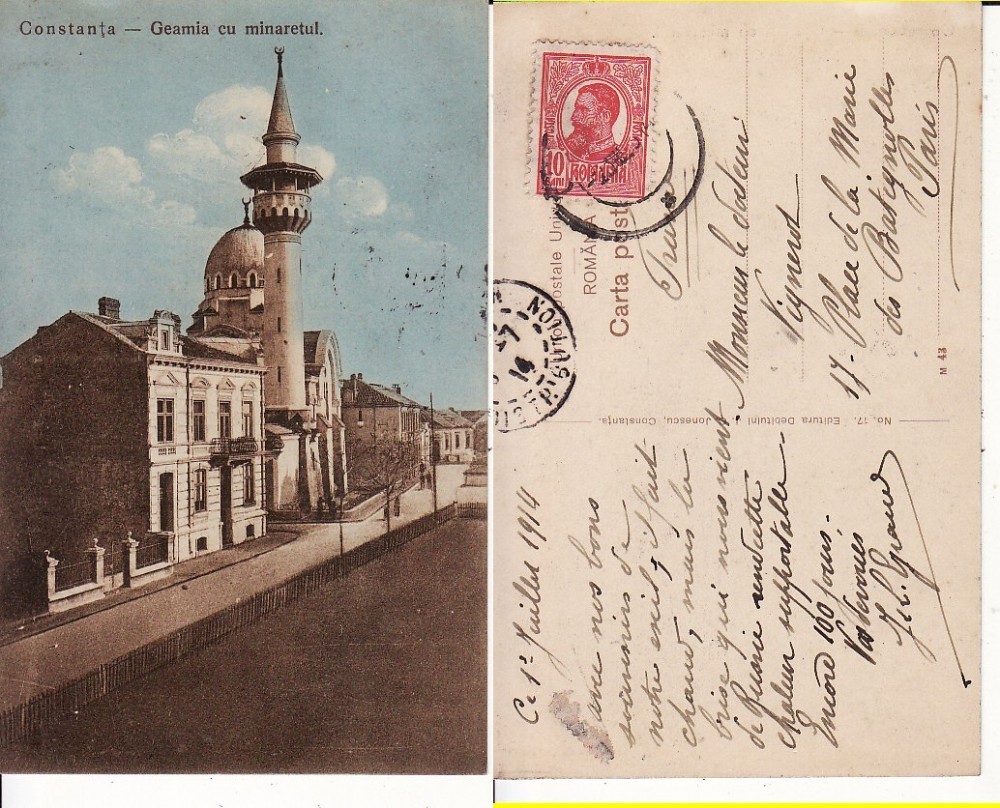 Constanța — Geamia cu minaretul.
10 BANI
ROMANIA
Uniunea Postale Universale
ROMÂNIA
Carta postala
Monsieur le docteur
Vigneret
17- Place de la Mairie
des Batignolles
Paris
No. 17. Editura Debitului J. Jonescu, Constanța.
M 43
Ce 1er Juillet 1914
avec nos bons
souvenirs de
notre exil, il fait
chaud, mais la
brise qui nous vient
de Russie rend cette
chaleur supportable
Encore 100 jours.
14